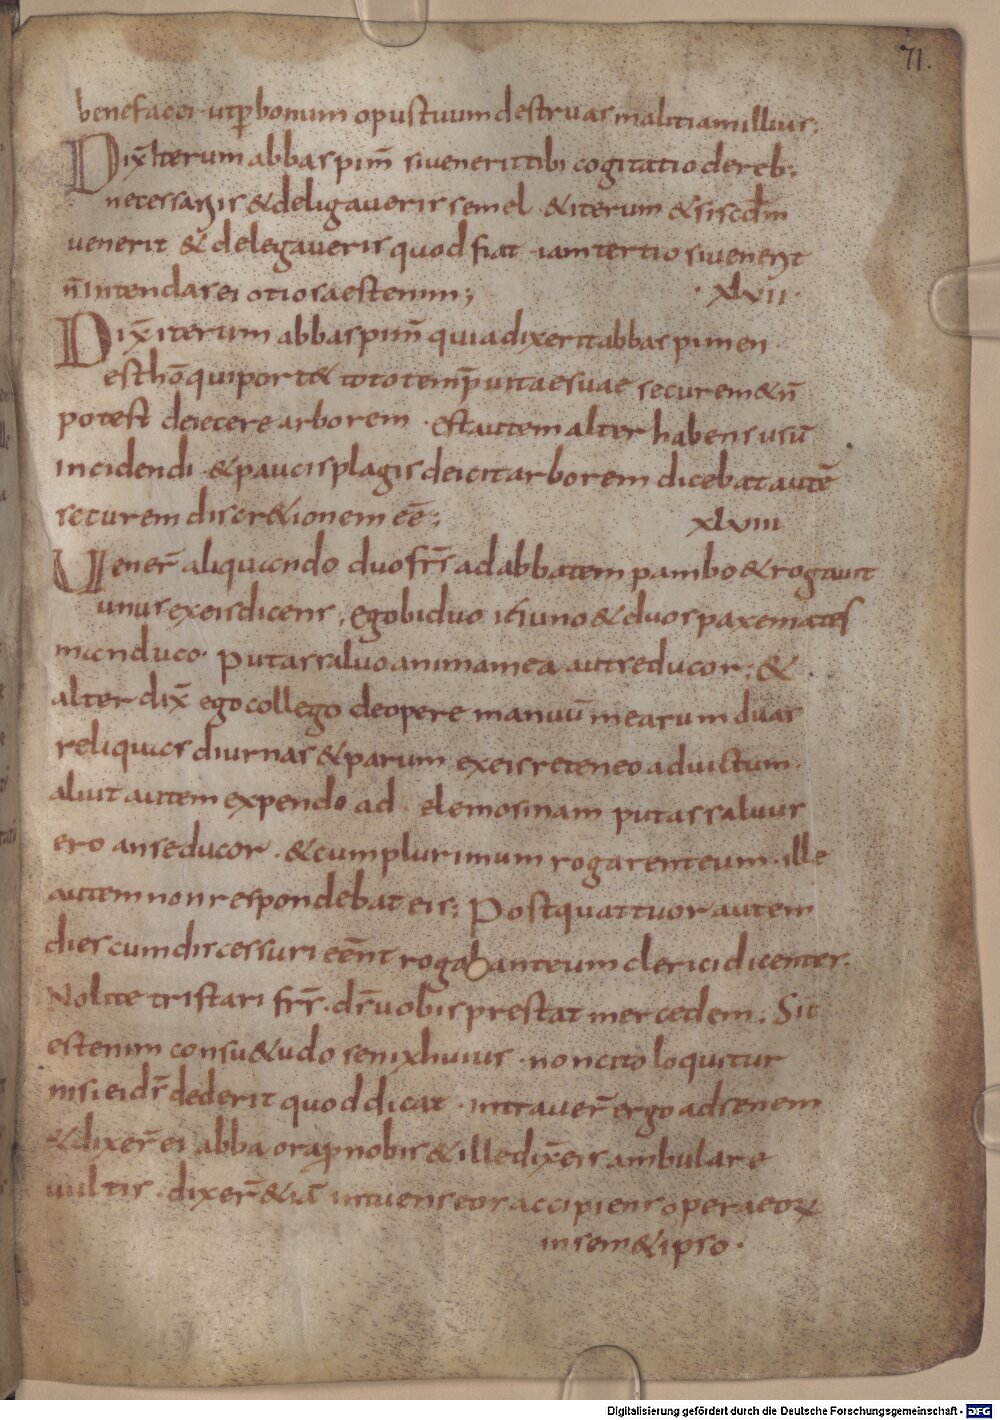 71.
benefacei · utp̱ bonum opus tuum destruas malitiam illius;
Dix̄ iterum abbas pim̄ si uenerit tibi cogitatio de reb;
necessariis & deligaueris semel · & iterum & si scdm̄
uenerit & delegaueris quod fiat · iam tertio si uenerit
n̄ intendas ei otiosa est enim; · xlvii ·
Dix̄ iterum abbas pim̄ quia dixerit abbas pimen ·
est hō qui port& toto temp̱ uitae suae securem & n̄
potest deicere arborem · est autem alter habens usū
incidendi & paucis plagis deicit arborem dicebat autē
securem discr&ionem eē; xlviii
Uener̄ aliquando duo fr̄s ad abbatem pambo & rogauit
unus ex eis dicens, ego biduo ieiuno & duos paxemates
manduco · putas saluo anima mea aut seducor; &
alter dix̄ ego collego de opere manuū mearum duas
reliquias diurnas & parum ex eis reteneo ad uictum ·
aliut autem expendo ad · elemosinam putas saluus
ero an seducor · & cum plurimum rogarent eum · ille
autem non respondebat eis; Post quattuor autem
dies cum discessuri eēnt rogabant eum clerici dicentes ·
Nolite tristari fr̄s · dr̄ uobis prestat mercedem. Sic
est enim consu&udo senix huius · non cito loquitur
nisi ei dr̄ dederit quod dicat · intrauer̄ ergo ad senem
& dixer̄ ei abba ora p̱ nobis & ille dix̄ eis ambulare
uultis · dixer̄ &iā intuens eos accipiens opera eoꝝ
in sem&ipso ·
Digitalisierung gefördert durch die Deutsche Forschungsgemeinschaft - DFG